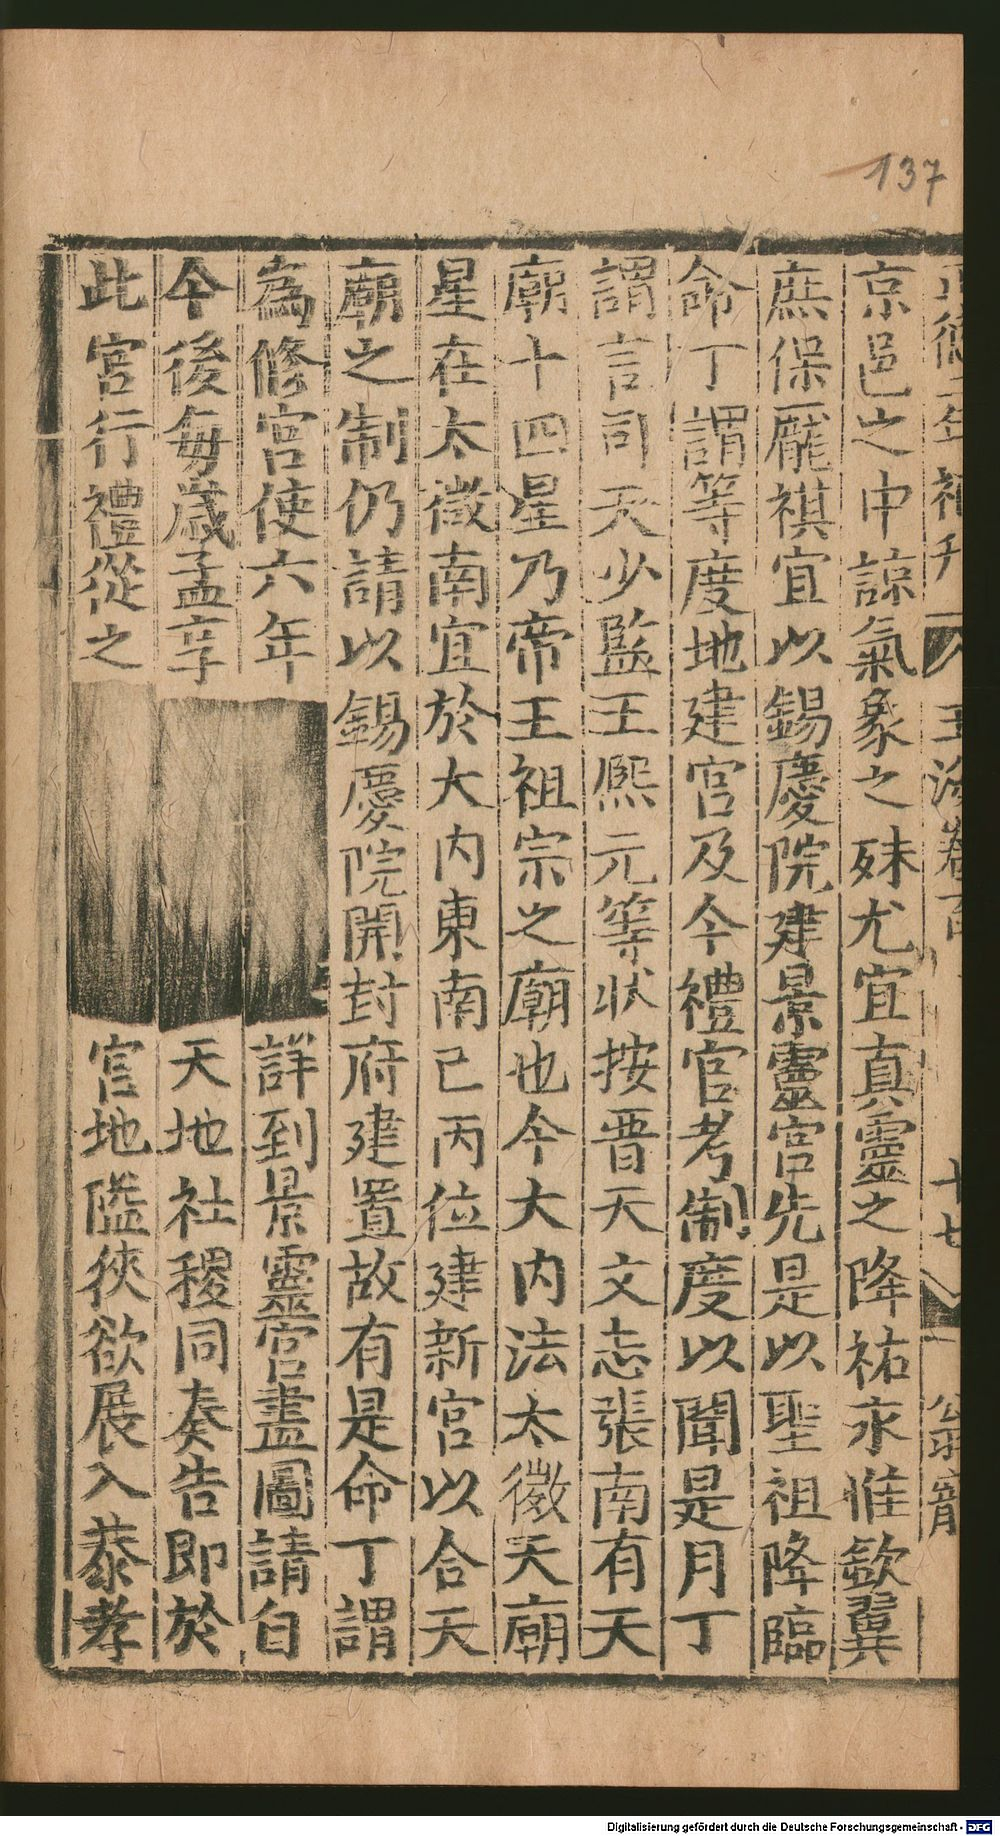 137
京邑之中諒氣象之殊尤宜真靈之降祐永惟歆翼
庶保龐祺宜以錫慶院建景靈宮先是以聖祖降臨
命丁謂等度地建宮及今禮官考制度以聞是月丁
謂言司天少監王熙元等状按晋天文志張南有天
廟十四星乃帝王祖宗之廟也今大内法太微天廟
星在太微南宜於大内東南巳丙位建新宮以合天
廟之制仍請以錫慶院開封府建置故有是命丁謂
為修宮使六年 詳到景靈宮畫圖請自
今後每歲孟享 天地社稷同奏告即於
此宮行禮從之 宮地隘狹欲展入恭孝
玉海卷百 十七
Digitalisierung gefördert durch die Deutsche Forschungsgemeinschaft - DFG